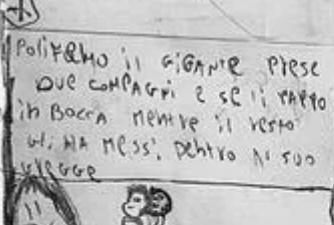 POLIFEMO il GIGANTE PRESE
DUE COMPAGNI E SE li
in BOCCA MENTRE il RESTO
GLI HA MESSI DENTRO AL SUO
GREGGE